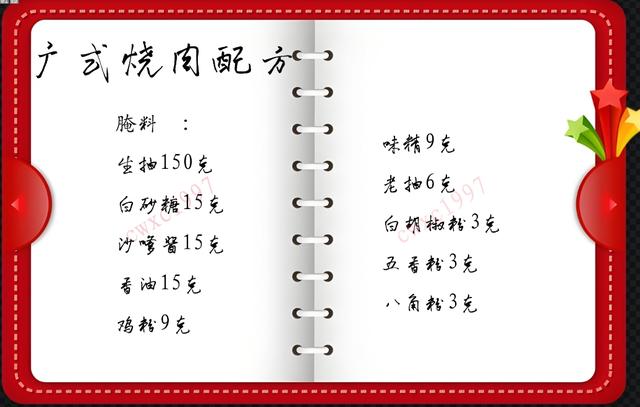 广式烧肉配方
腌料 :
生抽150克
白砂糖15克
沙嗲酱15克
香油15克
鸡粉9克
味精9克
老抽6克
白胡椒粉3克
五香粉3克
八角粉3克
cwxc1997
cwxc1997